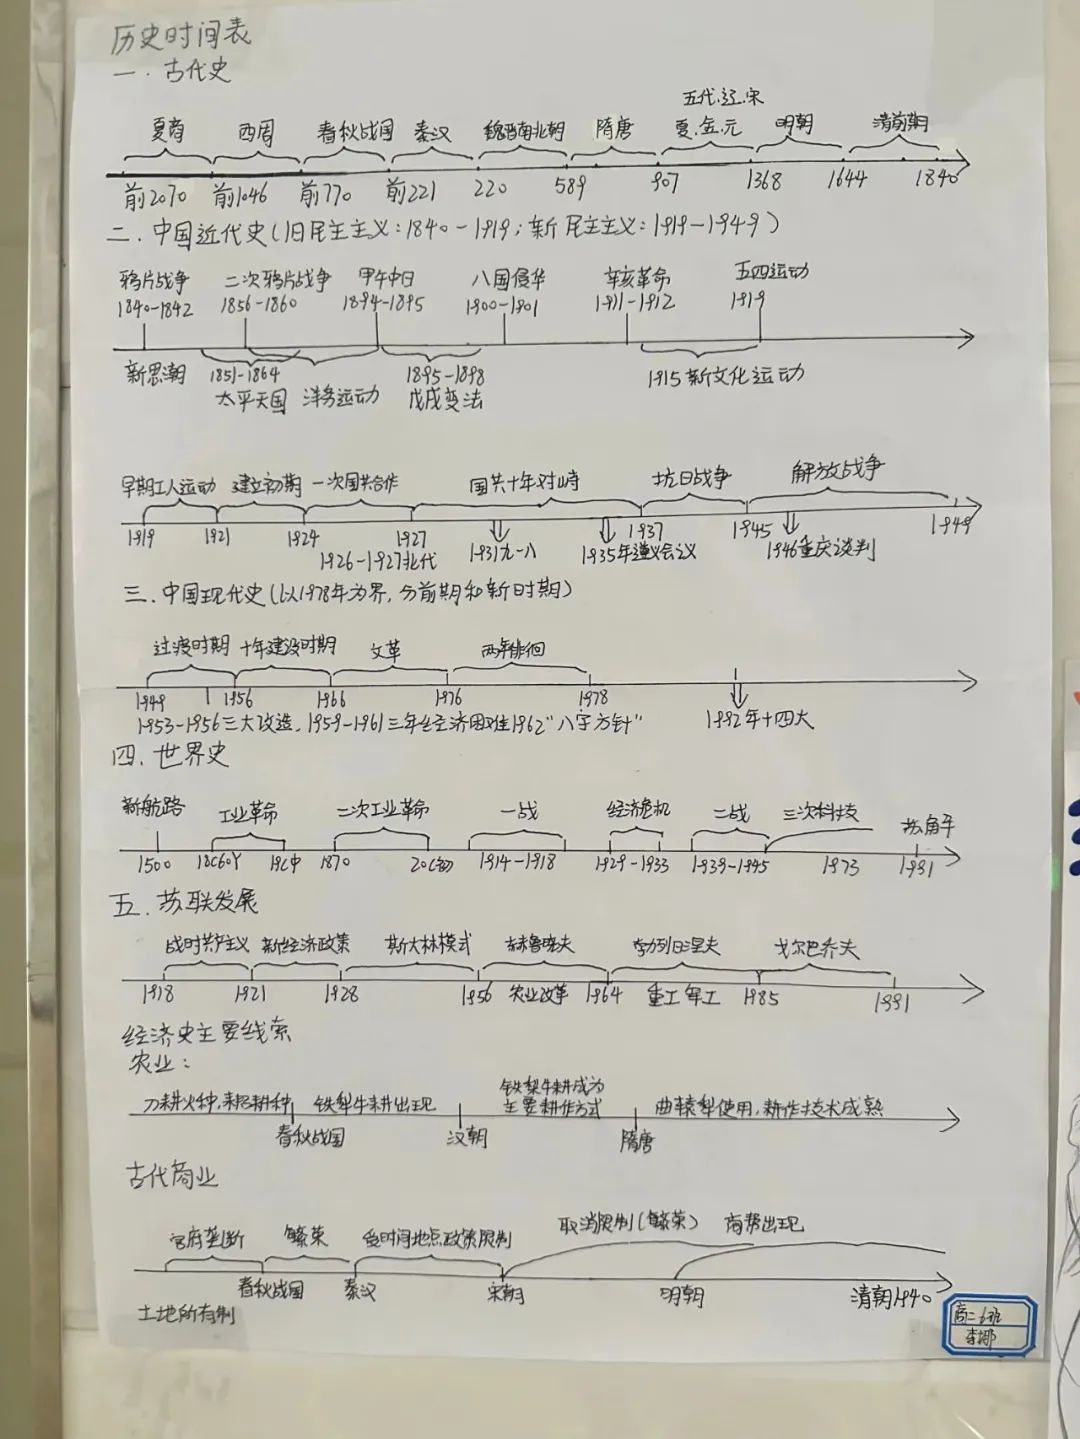 历史时间表
一.古代史
五代.辽.宋
夏商 西周 春秋战国 秦汉 魏晋南北朝 隋唐 夏.金.元 明朝 清前期
前2070 前1046 前770 前221 220 589 907 1368 1644 1840
二.中国近代史(旧民主主义:1840-1919;新民主主义:1919-1949)
鸦片战争 二次鸦片战争 甲午中日 八国侵华 辛亥革命 五四运动
1840-1842 1856-1860 1894-1895 1900-1901 1911-1912 1919
新思潮 1851-1864 1895-1898 1915新文化运动
太平天国 洋务运动 戊戌变法
早期工人运动 建立初期 一次国共合作 国共十年对峙 抗日战争 解放战争
1919 1921 1924 1927 1937 1945 1949
1926-1927北伐 1931九一八 1935年遵义会议 1946重庆谈判
三.中国现代史(以1978年为界,分前期和新时期)
过渡时期 十年建设时期 文革 两年徘徊
1949 1956 1966 1976 1978
1953-1956三大改造,1959-1961三年经济困难1962"八字方针" 1992年十四大
四.世界史
新航路 工业革命 二次工业革命 一战 经济危机 二战 三次科技 苏解体
1500 18C60Y 19C中 1870 20C初 1914-1918 1929-1933 1939-1945 1973 1991
五.苏联发展
战时共产主义 新经济政策 斯大林模式 赫鲁晓夫 勃列日涅夫 戈尔巴乔夫
1918 1921 1928 1956 农业改革 1964 重工军工 1985 1991
经济史主要线索
农业:
铁犁牛耕成为
刀耕火种,耒耜耕种 铁犁牛耕出现 主要耕作方式 曲辕犁使用,耕作技术成熟
春秋战国 汉朝 隋唐
古代商业
官府垄断 繁荣 受时间地点政策限制 取消限制(繁荣) 商帮出现
春秋战国 秦汉 宋朝 明朝 清朝1940
土地所有制
高二6班
李娜